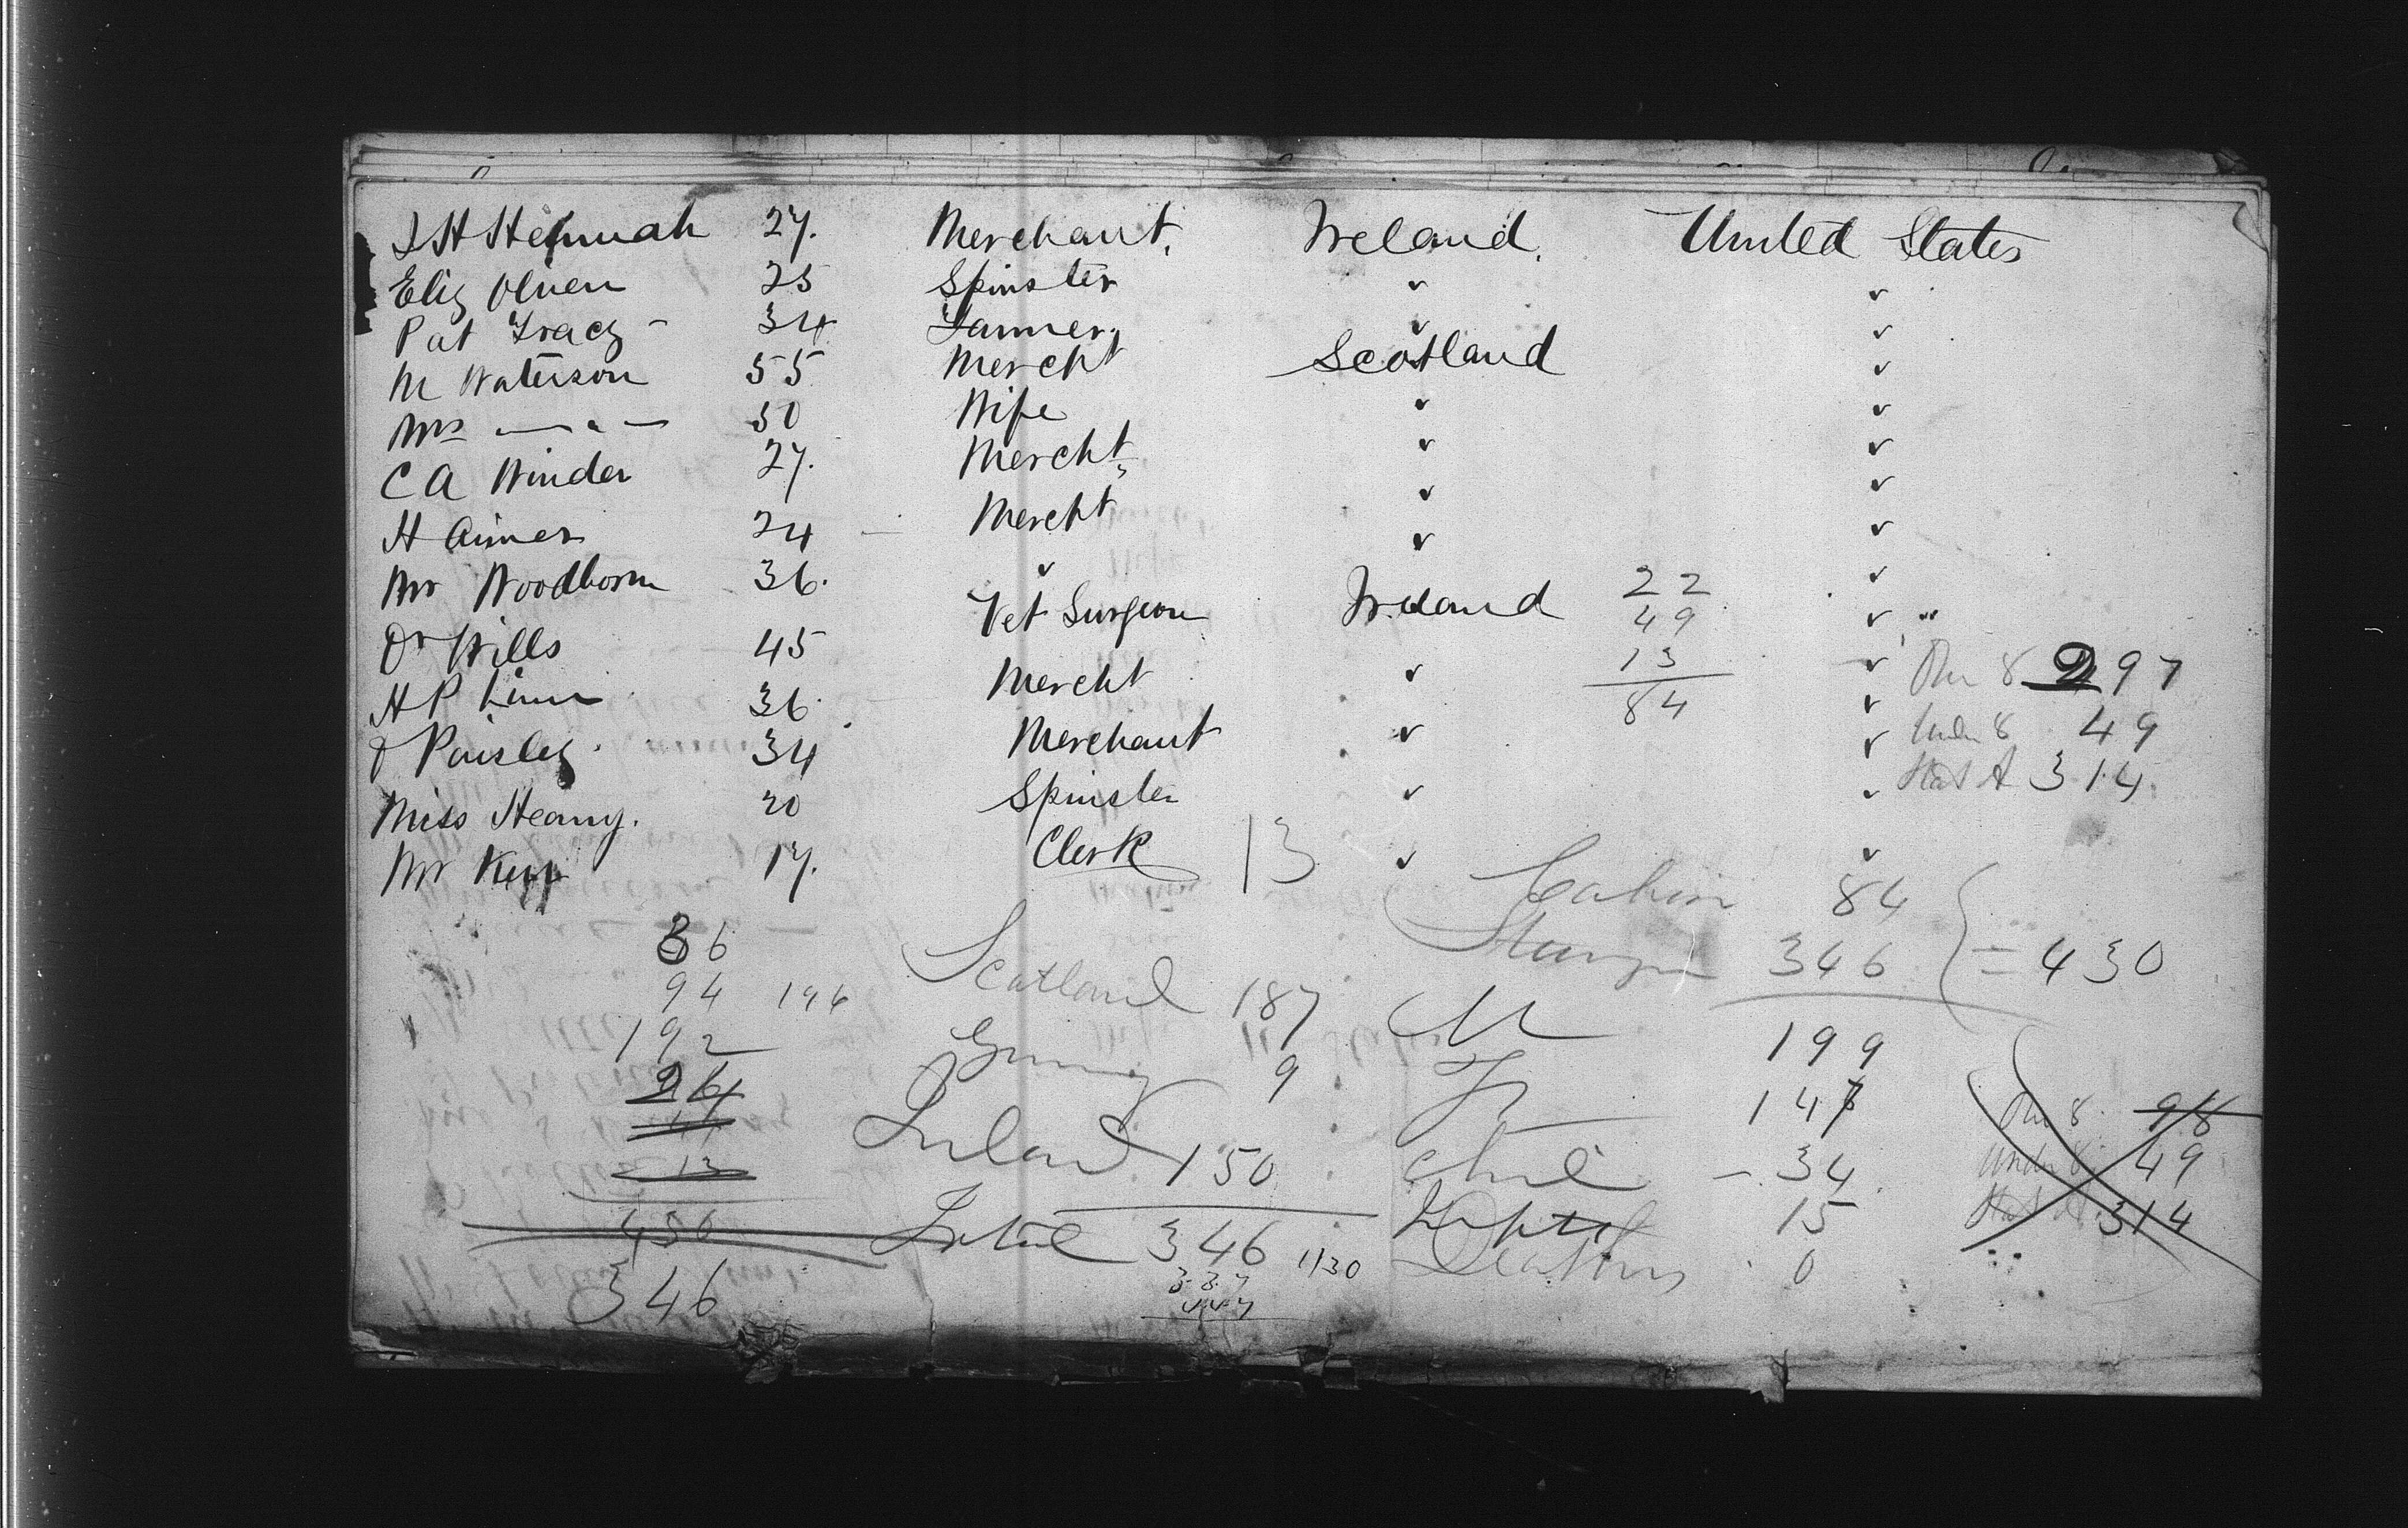 J H Hannah 27. Merchant. Ireland. United States
Eliz Olven 25 Spinster " "
Pat Tracy - 34 Farmer " "
M Waterson 55 Mercht Scotland "
Mrs — " — 30 Wife " "
C A Winder 27. Mercht " "
H Aimer 24 Mercht " "
Mr Woodborn 36. " " "
Dr Wills 45 Vet Surgeon Ireland " "
H P Linn 36. Mercht " "
J Paisley. 34 Merchant " "
Miss Heany. 20 Spinster " "
Mr Kerr 17. Clerk 13 " "
22
49
13
84
Over 8 297
Under 8 49
Stat A 314
Cabin 84
Steerage 346 = 430
36
94 196
192
264
13
430
346
Scotland 187
Germany 9
Ireland 150
Total 346 1130
M 199
F 147
Chil - 34
Infts 15
Deaths 0
Over 8. 98
Under 8 49
Stat A. 314